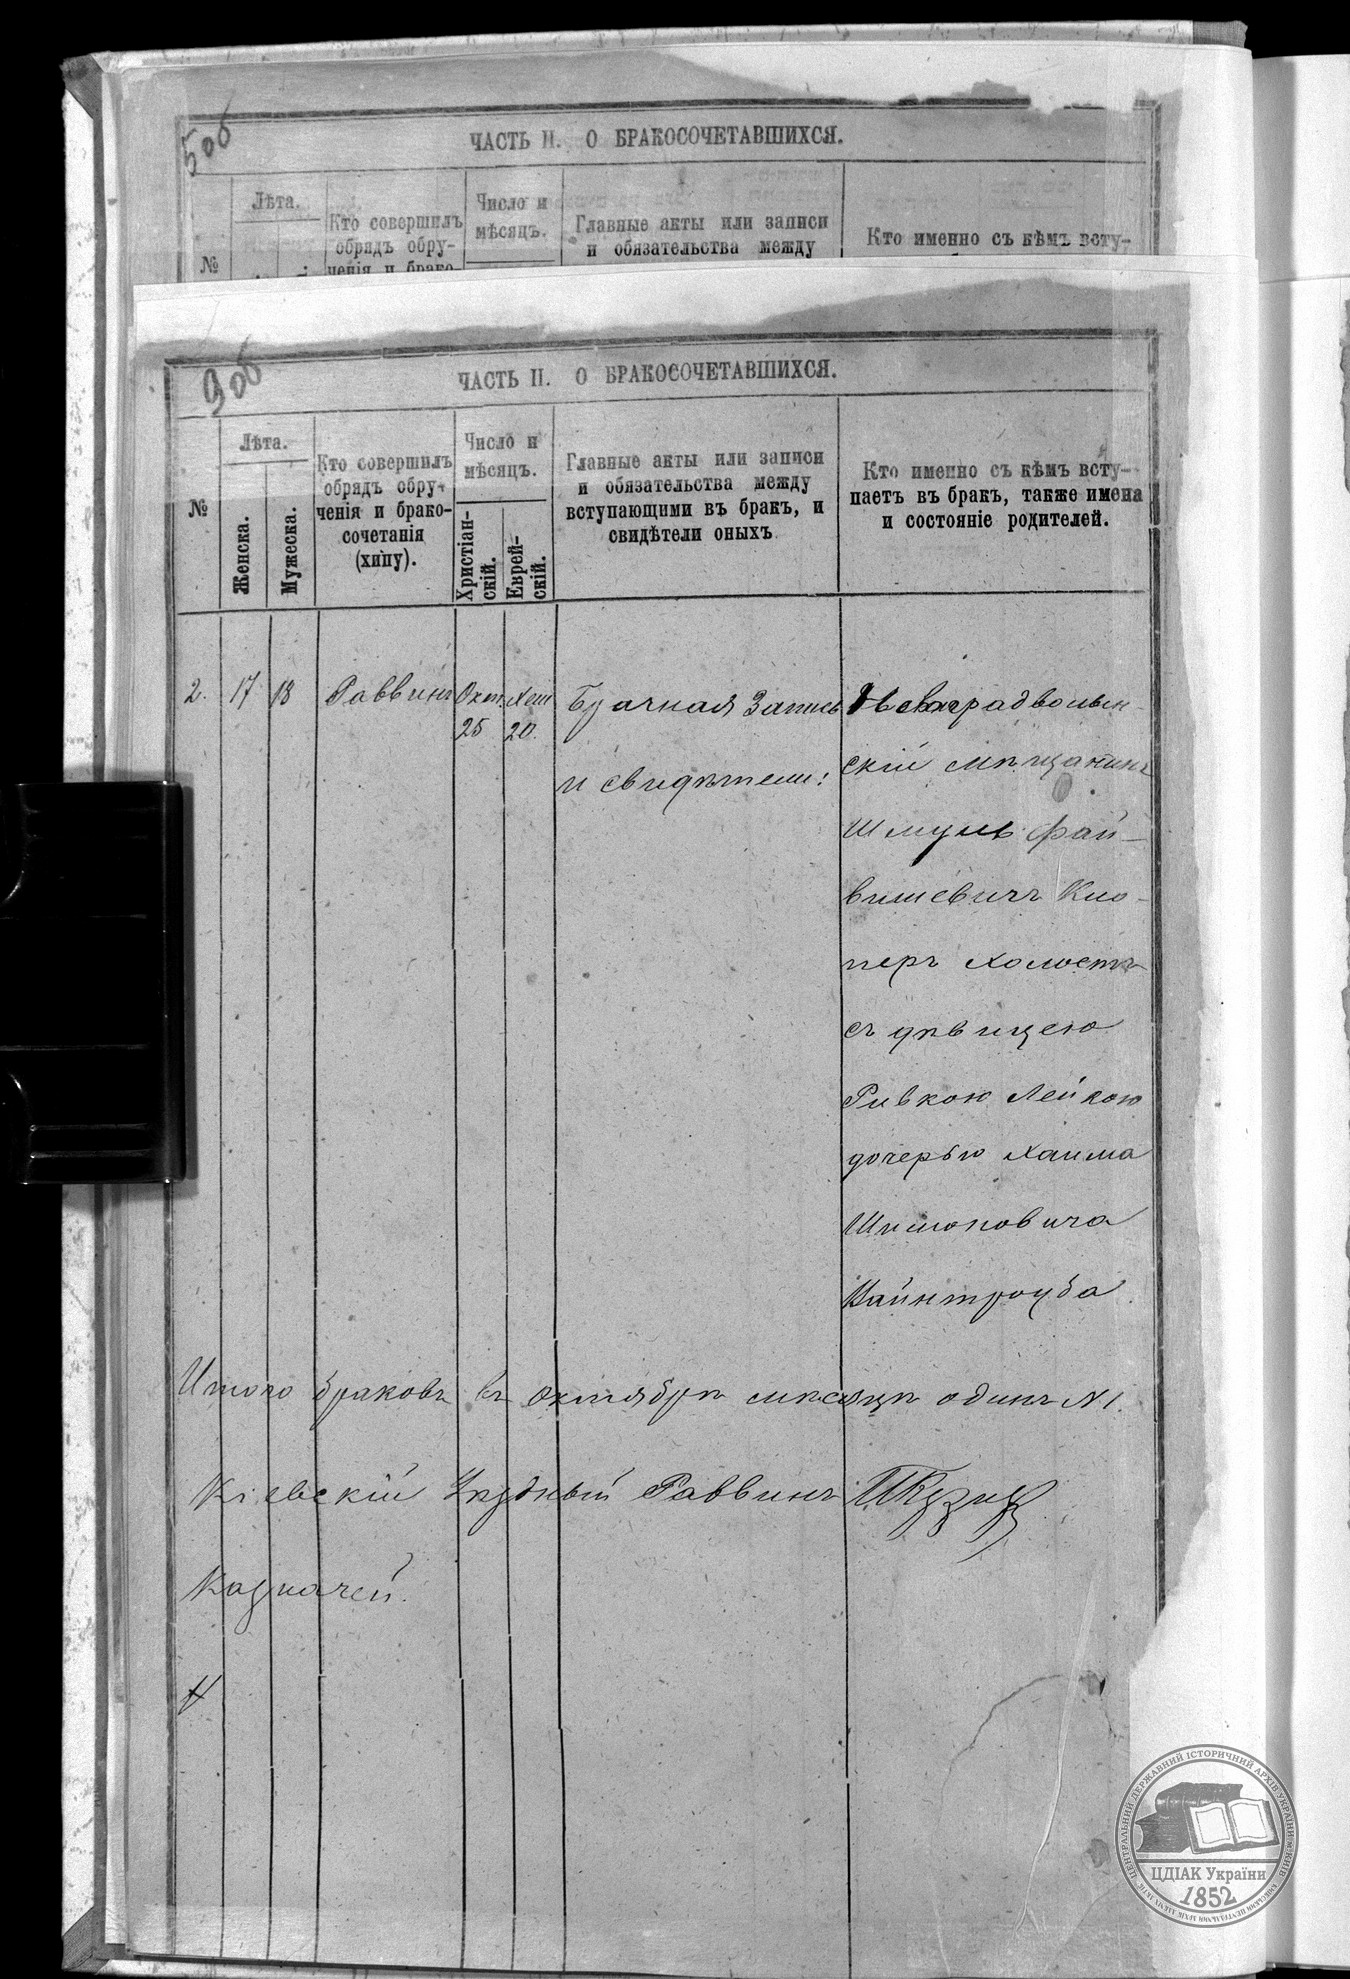 5об
ЧАСТЬ II. О БРАКОСОЧЕТАВШИХСЯ.
№
Лѣта.
Кто совершилъ
обрядъ обру-
ченія и брако-
Число и
мѣсяцъ.
Главные акты или записи
и обязательства между
Кто именно съ кѣмъ всту-
9об
ЧАСТЬ II. О БРАКОСОЧЕТАВШИХСЯ.
№
Лѣта.
Женска.
Мужеска.
Кто совершилъ
обрядъ обру-
ченія и брако-
сочетанія
(хипу).
Число и
мѣсяцъ.
Христіан-
скій.
Еврей-
скій.
Главные акты или записи
и обязательства между
вступающими въ бракъ, и
свидѣтели оныхъ
Кто именно съ кѣмъ всту-
паетъ въ бракъ, также имена
и состояніе родителей.
2.
17
18
Раввинъ
Окт.
25
Хеш
20
Брачная Запись
и свидѣтели:
Новоградволын-
скій мѣщанинъ
Шмуль Фай-
вишевичъ Кло-
перъ холостъ
съ дѣвицею
Ривкою Лейкою
дочерью Хаима
Шимоновича
Вайнтроуба
Итого браковъ въ октябрѣ мѣсяцѣ одинъ №1.
Кіевскій Уѣздный Раввинъ
Казначей.
ЦЕНТРАЛЬНИЙ ДЕРЖАВНИЙ ІСТОРИЧНИЙ АРХІВ УКРАЇНИ, М.КИЇВ
ЦДІАК України
1852